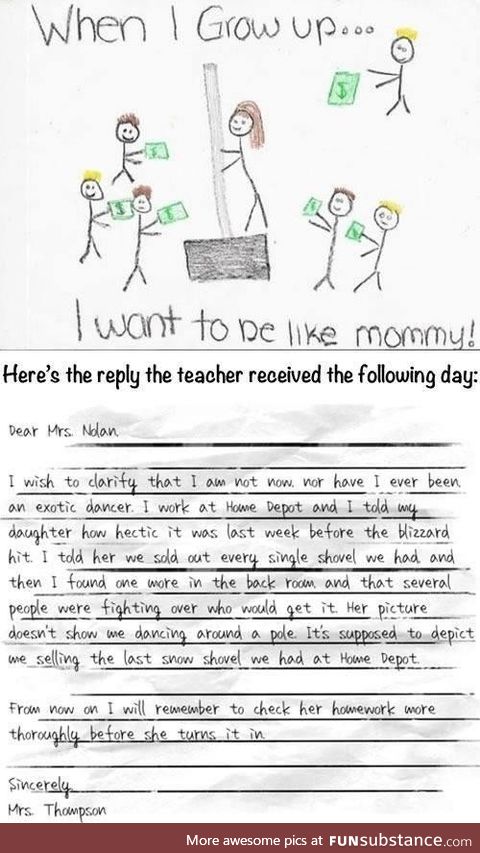 When I Grow up...
$
$
$
$
$
$
I want to be like mommy!
Here's the reply the teacher received the following day:
Dear Mrs. Nolan.
I wish to clarify that I am not now. nor have I ever been.
an exotic dancer. I work at Home Depot and I told my
daughter how hectic it was last week before the blizzard
hit. I told her we sold out every single shovel we had. and
then I found one more in the back room. and that several
people were fighting over who would get it. Her picture
doesn't show me dancing around a pole. It's supposed to depict
me selling the last snow shovel we had at Home Depot.
From now on I will remember to check her homework more
thoroughly before she turns it in.
Sincerely.
Mrs. Thompson
More awesome pics at FUNsubstance.com